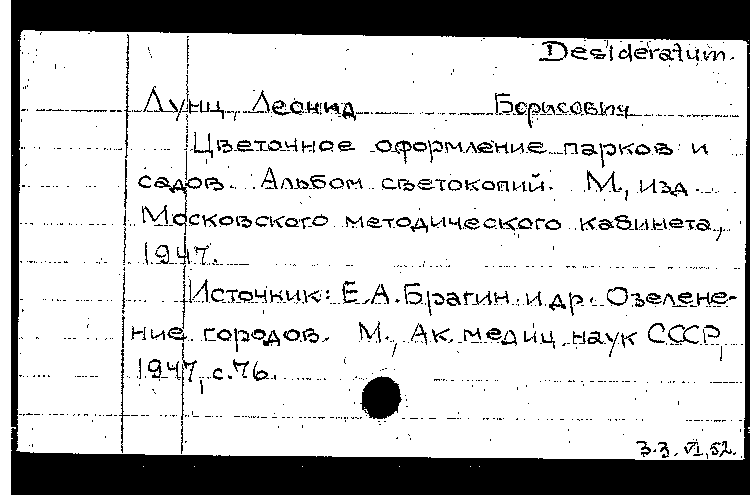 Desideratum.
Лунц, Леонид Борисович
Цветочное оформление парков и
садов. Альбом светокопий. М., изд.
Московского методического кабинета,
1947.
Источник: Е.А.Брагин и др. Озелене-
ние городов. М., Ак. медиц. наук СССР,
1947, с.76.
3.3.VI.52.